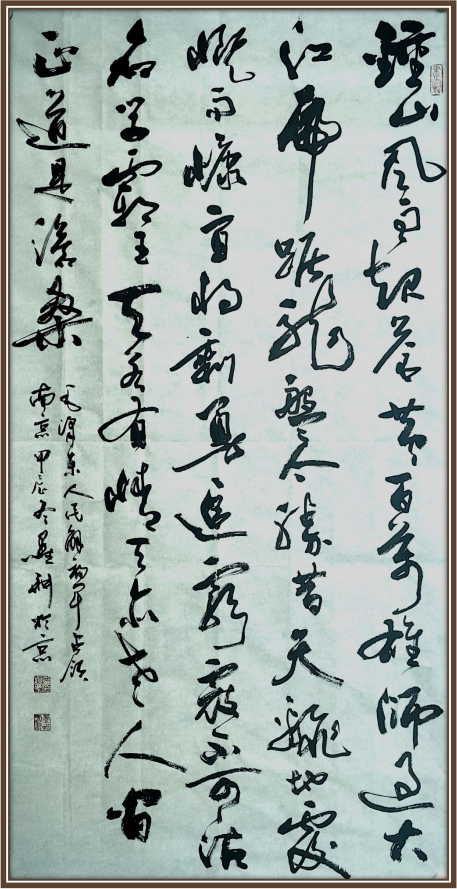 鐘山风雨起蒼黄百萬雄師過大
江虎踞龍盤今勝昔天翻地覆
慨而慷宜将剩勇追窮寇不可沽
名学霸王天若有情天亦老人间
正道是滄桑
毛澤东人民解放军占領
南京甲辰冬科於京